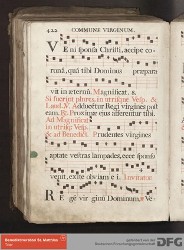 422 COMMUNE VIRGINUM.
VEni sponsa Christi, accipe co-
ronam, quam tibi Dominus præpara
vit in æternum. Magnificat. 8.
Si fuerint plures, in utrisque Vesp. &
Laud. V. Adducentur Regi virgines post
eam. R. Proximæ ejus afferentur tibi.
Ad Magnificat
in utrisque Vesp.
& ad Benedict. Prudentes virgines
aptate vestras lampades, ecce sponsus
venit, exite obviam ei. Invitator.
REgem virginum Dominum, * Ve-
Benediktinerabtei St. Matthias
Trier
gefördert von der
Deutschen Forschungsgemeinschaft
DFG